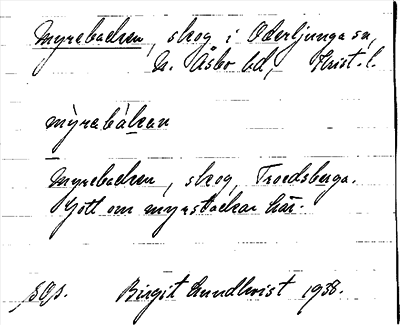 Myrebacken, skog i Oderljunga sn,
N. Åsbo hd, Krist. l.
mỳrəbákan
Myrebacken, skog, Troedsberga.
Gott om myrstackar här.
Birgit Lundkvist 1938.